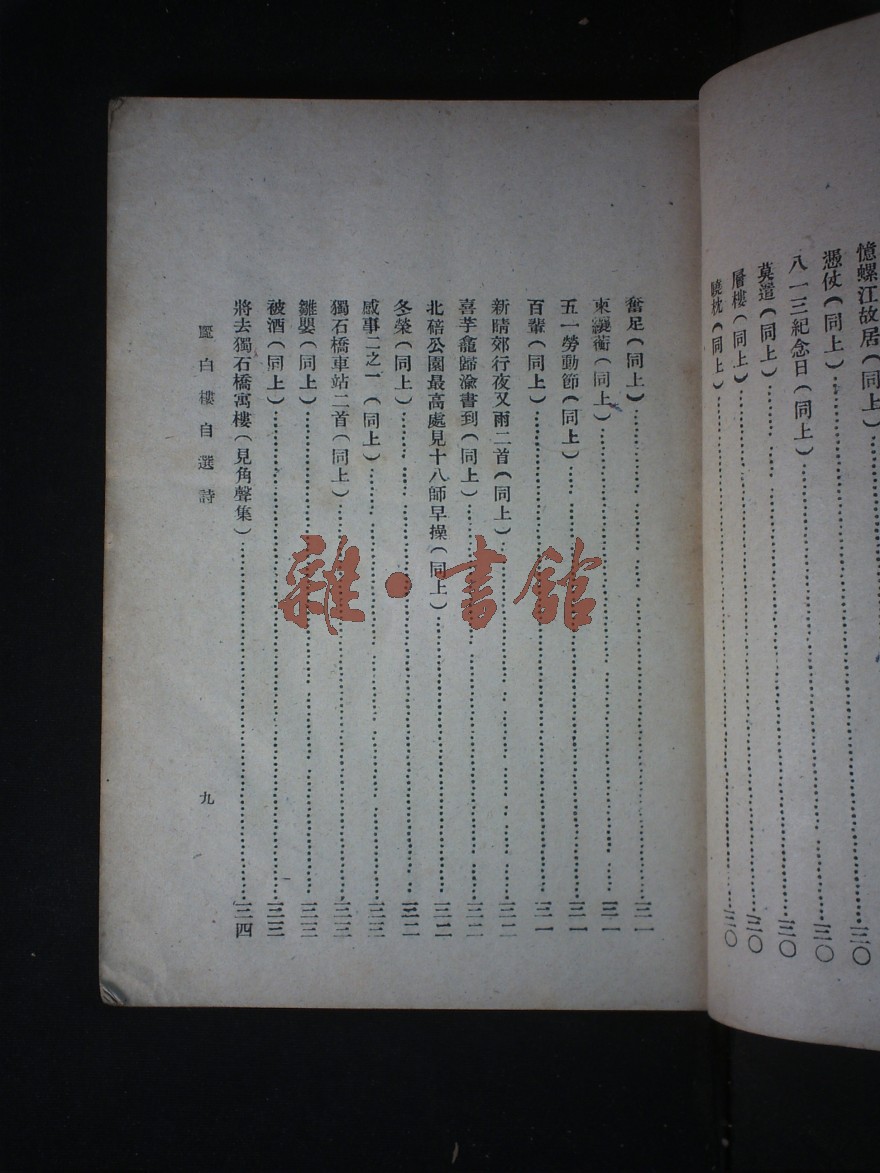 憶螺江故居(同上)……三〇
憑仗(同上)……三〇
八一三紀念日(同上)……三〇
莫遣(同上)……三〇
層樓(同上)……三〇
曉枕(同上)……三〇
奮足(同上)……三一
柬纕蘅(同上)……三一
五一勞動節(同上)……三一
百輩(同上)……三一
新晴郊行夜又雨二首(同上)……三二
喜芋龕歸渝書到(同上)……三二
北碚公園最高處見十八師早操(同上)……三二
冬榮(同上)……三二
感事二之一(同上)……三三
獨石橋車站二首(同上)……三三
雛嬰(同上)……三三
被酒(同上)……三三
將去獨石橋寓樓(見角聲集)……三四
白樓自選詩
九
雜·書館